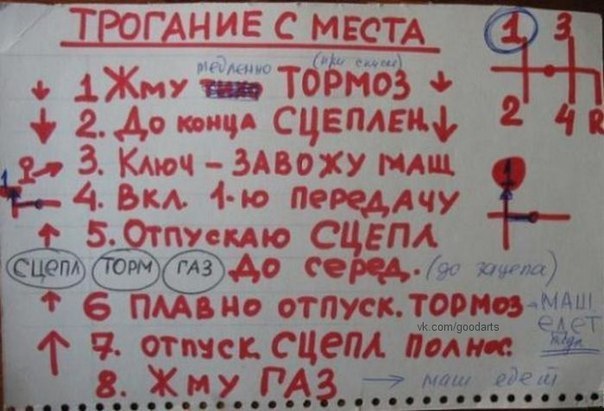 ТРОГАНИЕ С МЕСТА
1 3
2 4 R
медленно (при спуске)
1 Жму тихо ТОРМОЗ
2. До конца СЦЕПЛЕН.
3. Ключ – ЗАВОЖУ МАШ
4. Вкл. 1-ю передачу
1
1
5. Отпускаю СЦЕПЛ
СЦЕПЛ ТОРМ ГАЗ До серед. (до зацепа)
6 ПЛАВНО отпуск. ТОРМОЗ - МАШ
ЕДЕТ
vk.com/goodarts
7. отпуск. СЦЕПЛ полнос.
8. Жму ГАЗ → маш едет